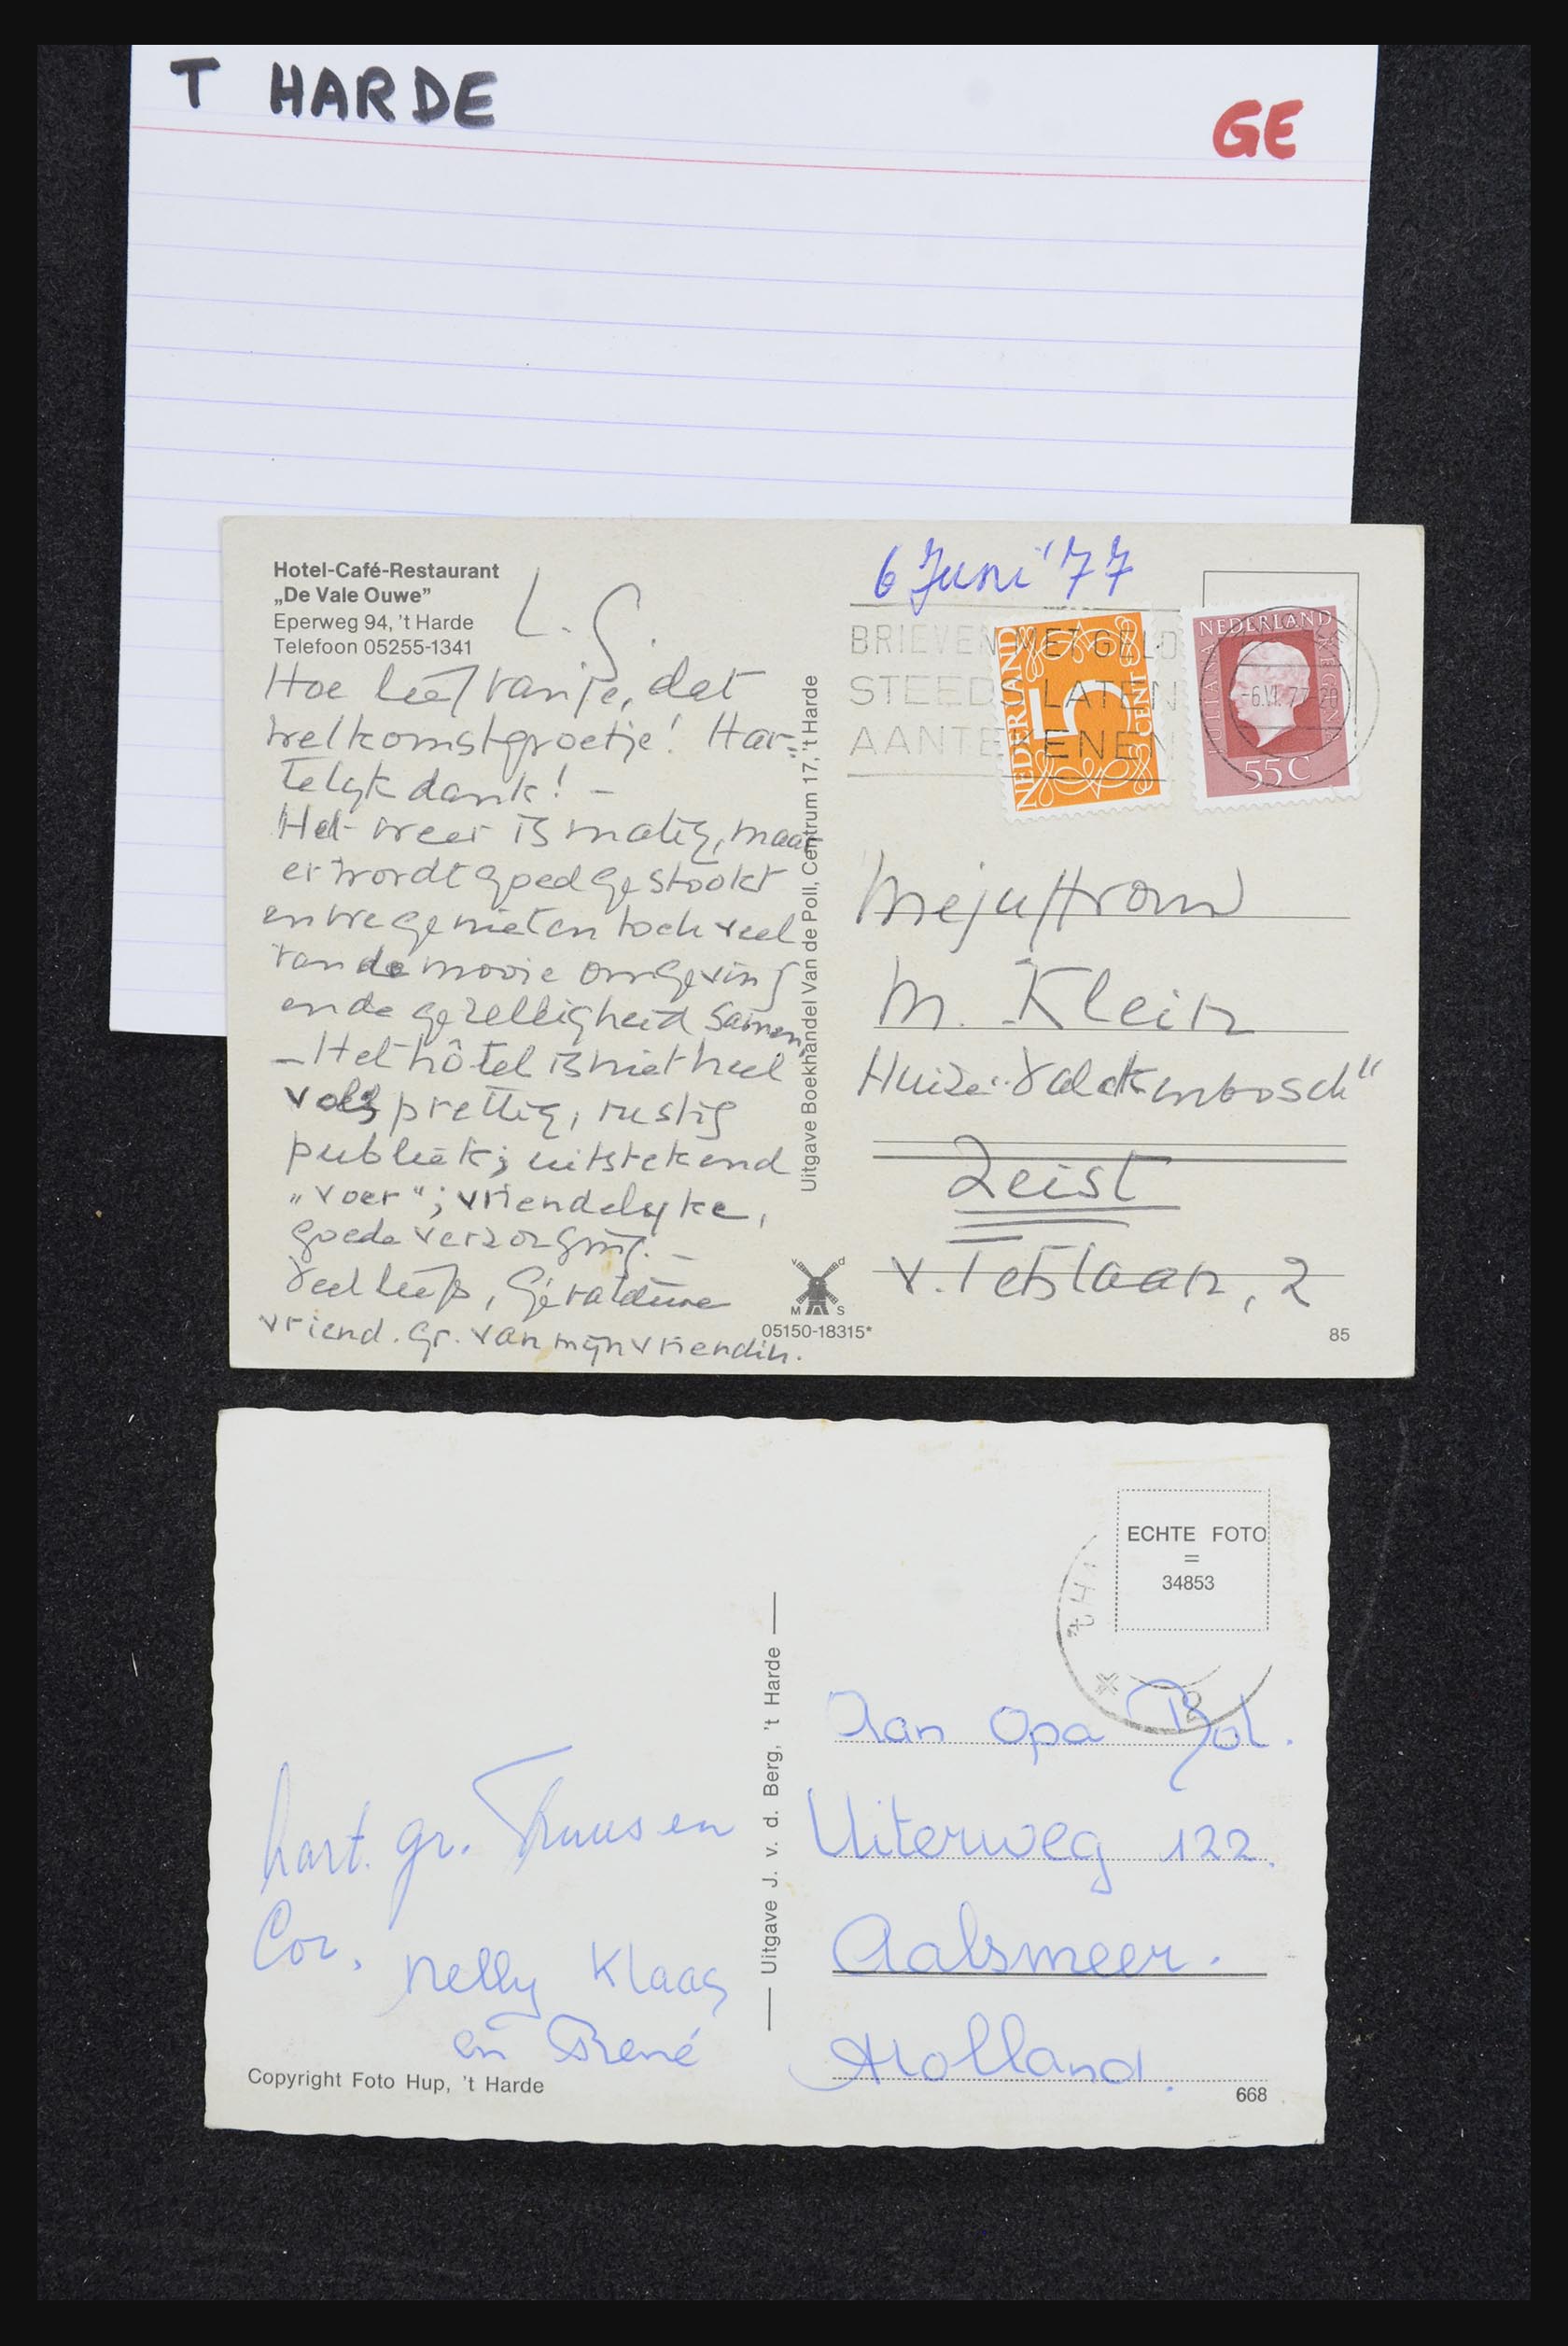 T HARDE
GE
Hotel-Café-Restaurant
„De Vale Ouwe”
Eperweg 94, 't Harde
Telefoon 05255-1341
L. G.
Hoe lief van je, dat
welkomstgroetje! Har-
telyk dank! –
Het weer is matig, maar
er wordt goed gestookt
en we genieten toch veel
van de mooie omgeving
en de gezelligheid samen.
– Het hôtel is niet heel
vol; prettig, rustig
publiek; uitstekend
„voer"; vriendelyke,
goede verzorging. –
Veel liefs, Géraldine
vriend. gr. van mijn vriendin.
Uitgave Boekhandel Van de Poll, Centrum 17, 't Harde
v d
M S
05150-18315*
6 Juni '77
BRIEVEN MET GELD
STEEDS LATEN
AANTEKENEN
NEDERLAND
5
CENT 5
NEDERLAND
JULIANA REGINA
55C
-6.VI.77-20
Mejuffrouw
M. Klein
Huize „Valckenbosch"
Zeist
v. Tetslaan, 2
85
ECHTE FOTO
=
34853
hart. gr. Truus en
Cor. Nelly Klaas
en René
Copyright Foto Hup, 't Harde
Uitgave J. v. d. Berg, 't Harde
Aan Opa Bol.
Uiterweg 122.
Aalsmeer.
Holland.
668